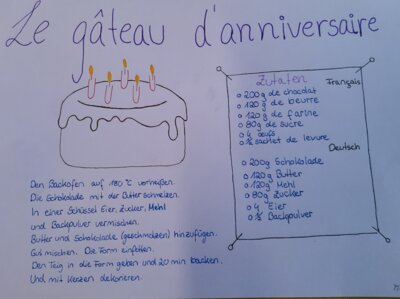 Le gâteau d'anniversaire
Zutaten
Français
200g de chocolat
120g de beurre
120g de farine
80g de sucre
4 œufs
½ sachet de levure
Deutsch
200g Schokolade
120g Butter
120g Mehl
80g Zucker
4 Eier
½ Backpulver
Den Backofen auf 180°C vorheißen.
Die Schokolade mit der Butter schmelzen.
In einer Schüssel Eier, Zucker, Mehl
und Backpulver vermischen.
Butter und Schokolade (geschmolzen) hinzufügen.
Gut mischen. Die Form einfetten.
Den Teig in die Form geben und 20 min backen.
Und mit Kerzen dekorieren.